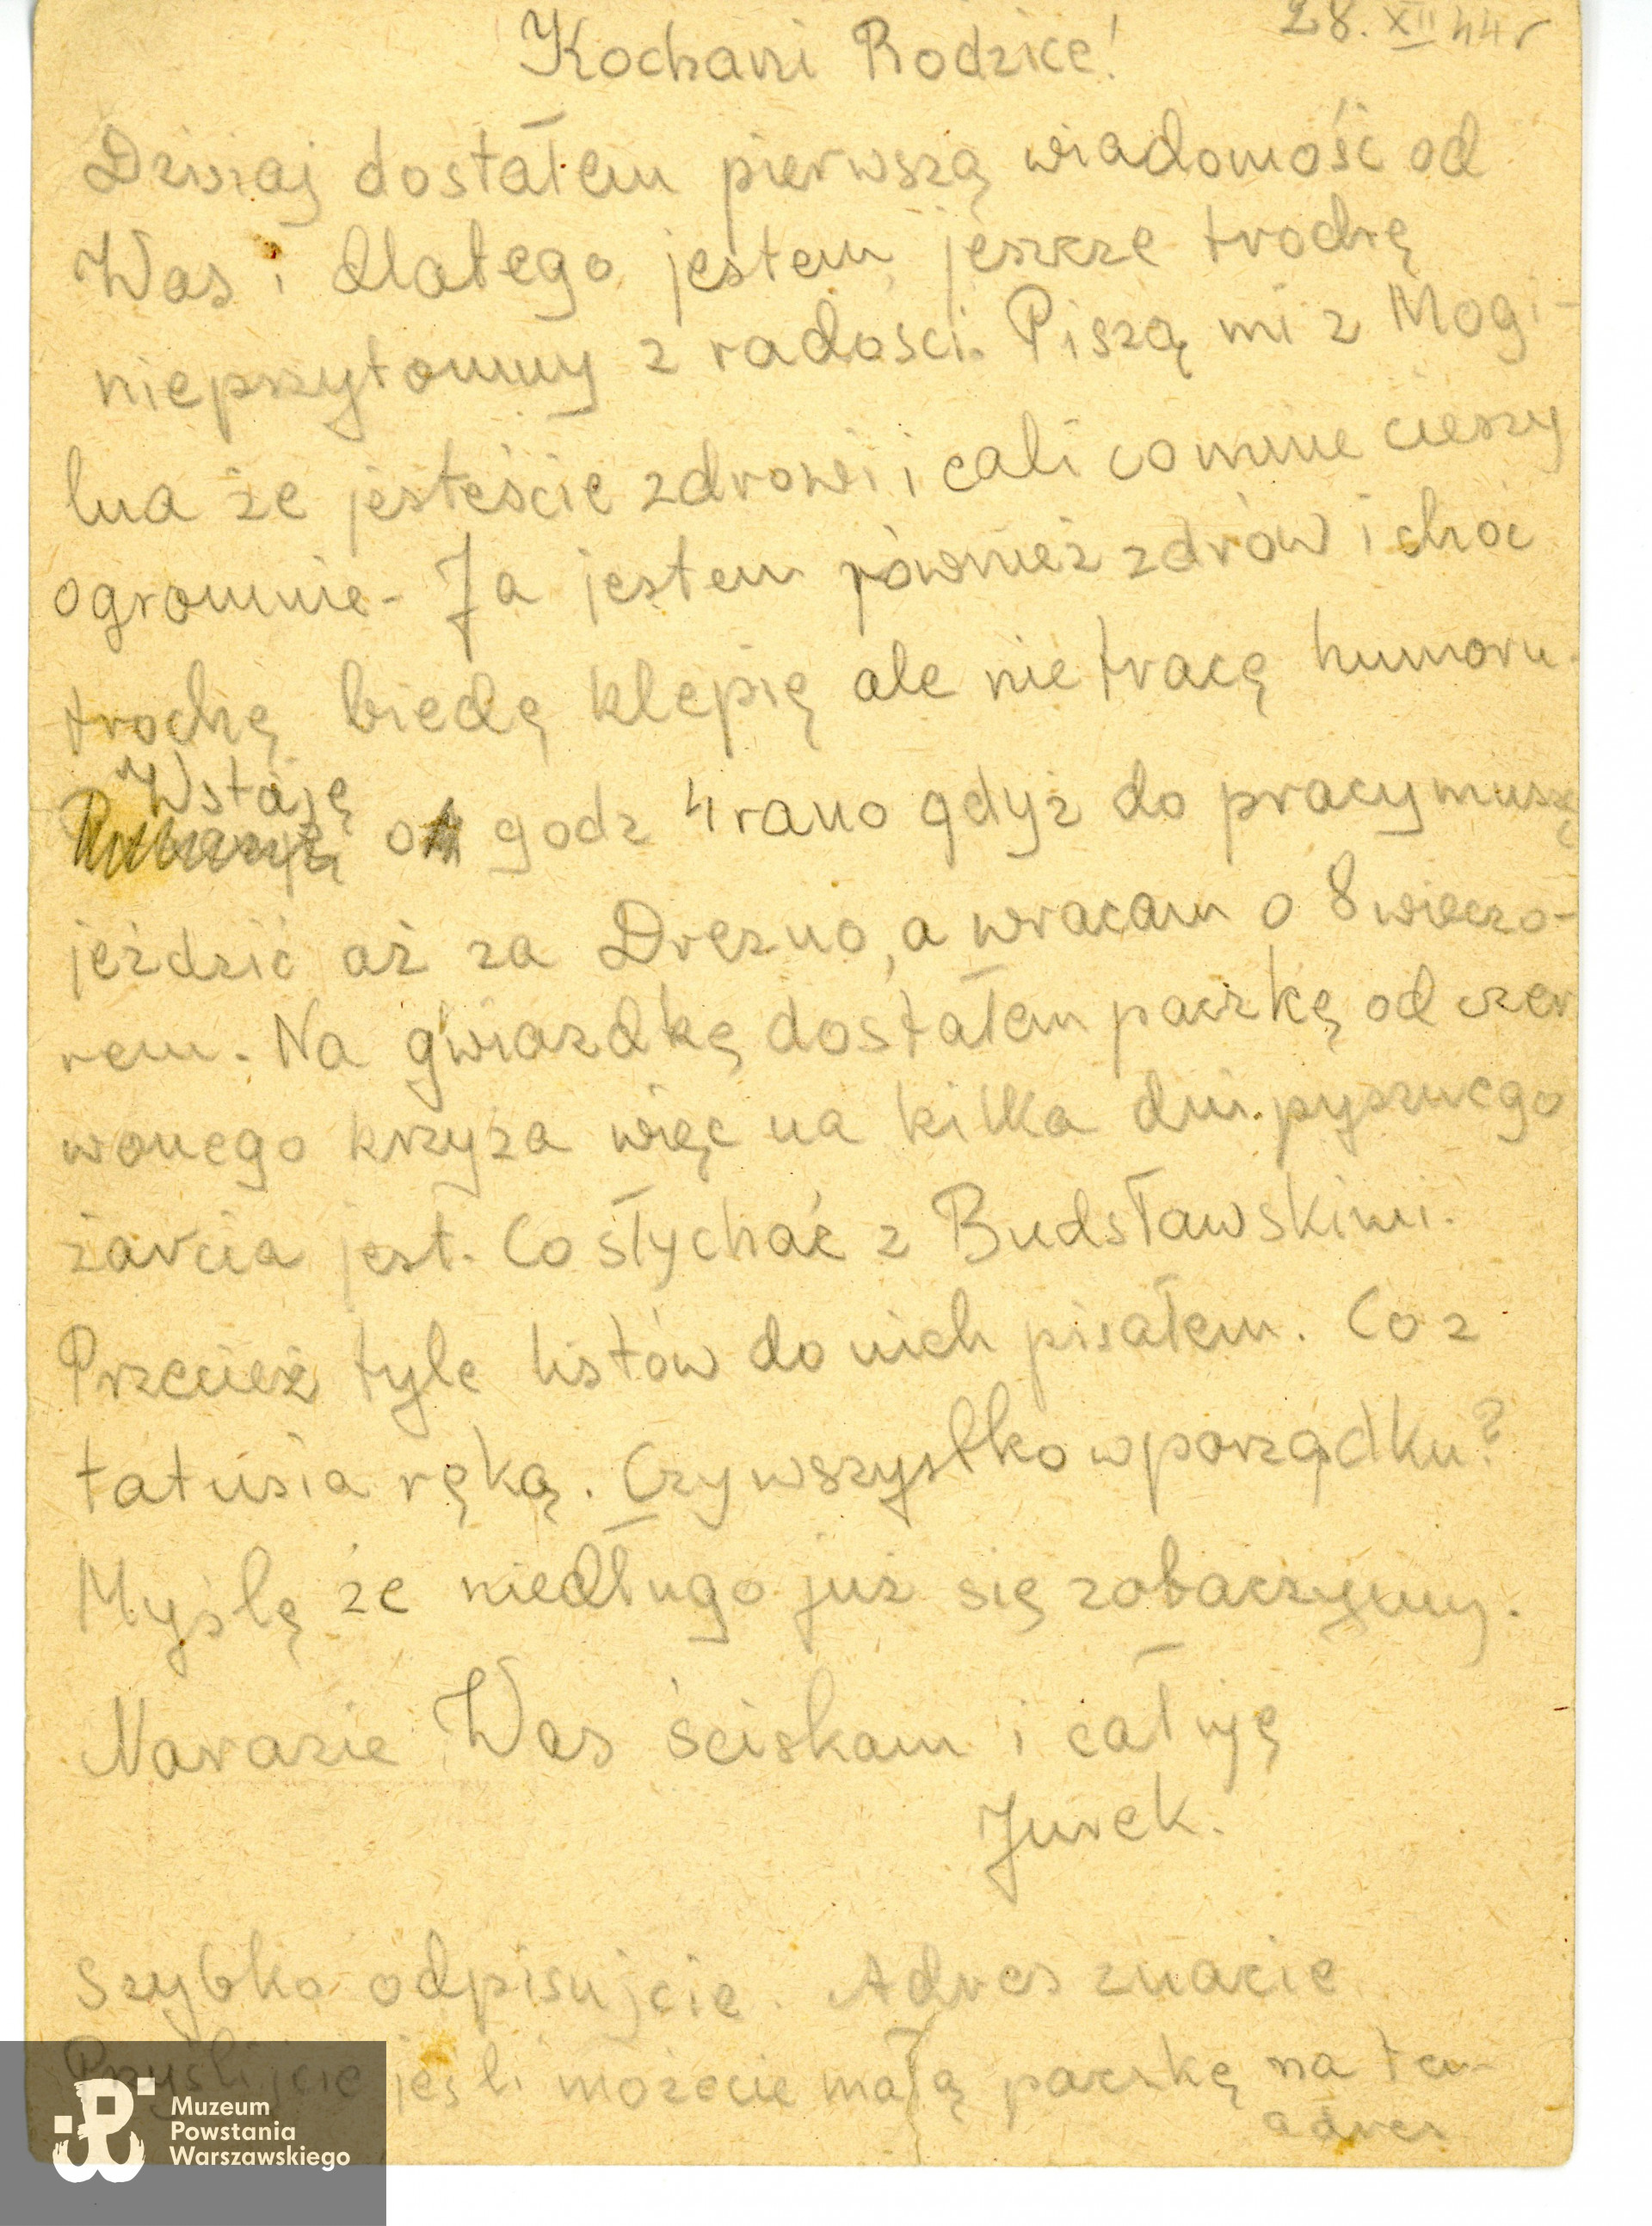 28. XII 44 r
Kochani Rodzice!
Dzisiaj dostałem pierwszą wiadomość od
Was i dlatego jestem jeszcze trochę
nieprzytomny z radości. Piszą mi z Mogi-
lna że jesteście zdrowi i cali co mnie cieszy
ogromnie - Ja jestem również zdrów i choć
trochę biedę klepię ale nie tracę humoru.
Wstaję
o godz 4 rano gdyż do pracy muszę
jeździć aż za Drezno, a wracam o 8 wieczo-
rem. Na gwiazdkę dostałem paczkę od czer
wonego krzyża więc na kilka dni pysznego
żarcia jest. Co słychać z Budsławskimi.
Przecież tyle listów do nich pisałem. Co z
tatusia ręką. Czy wszystko w porządku?
Myślę że niedługo już się zobaczymy.
Narazie Was ściskam i całuję
Jurek.
Szybko odpisujcie. Adres znacie
Przyślijcie jeśli możecie małą paczkę na ten
adres
Muzeum
Powstania
Warszawskiego